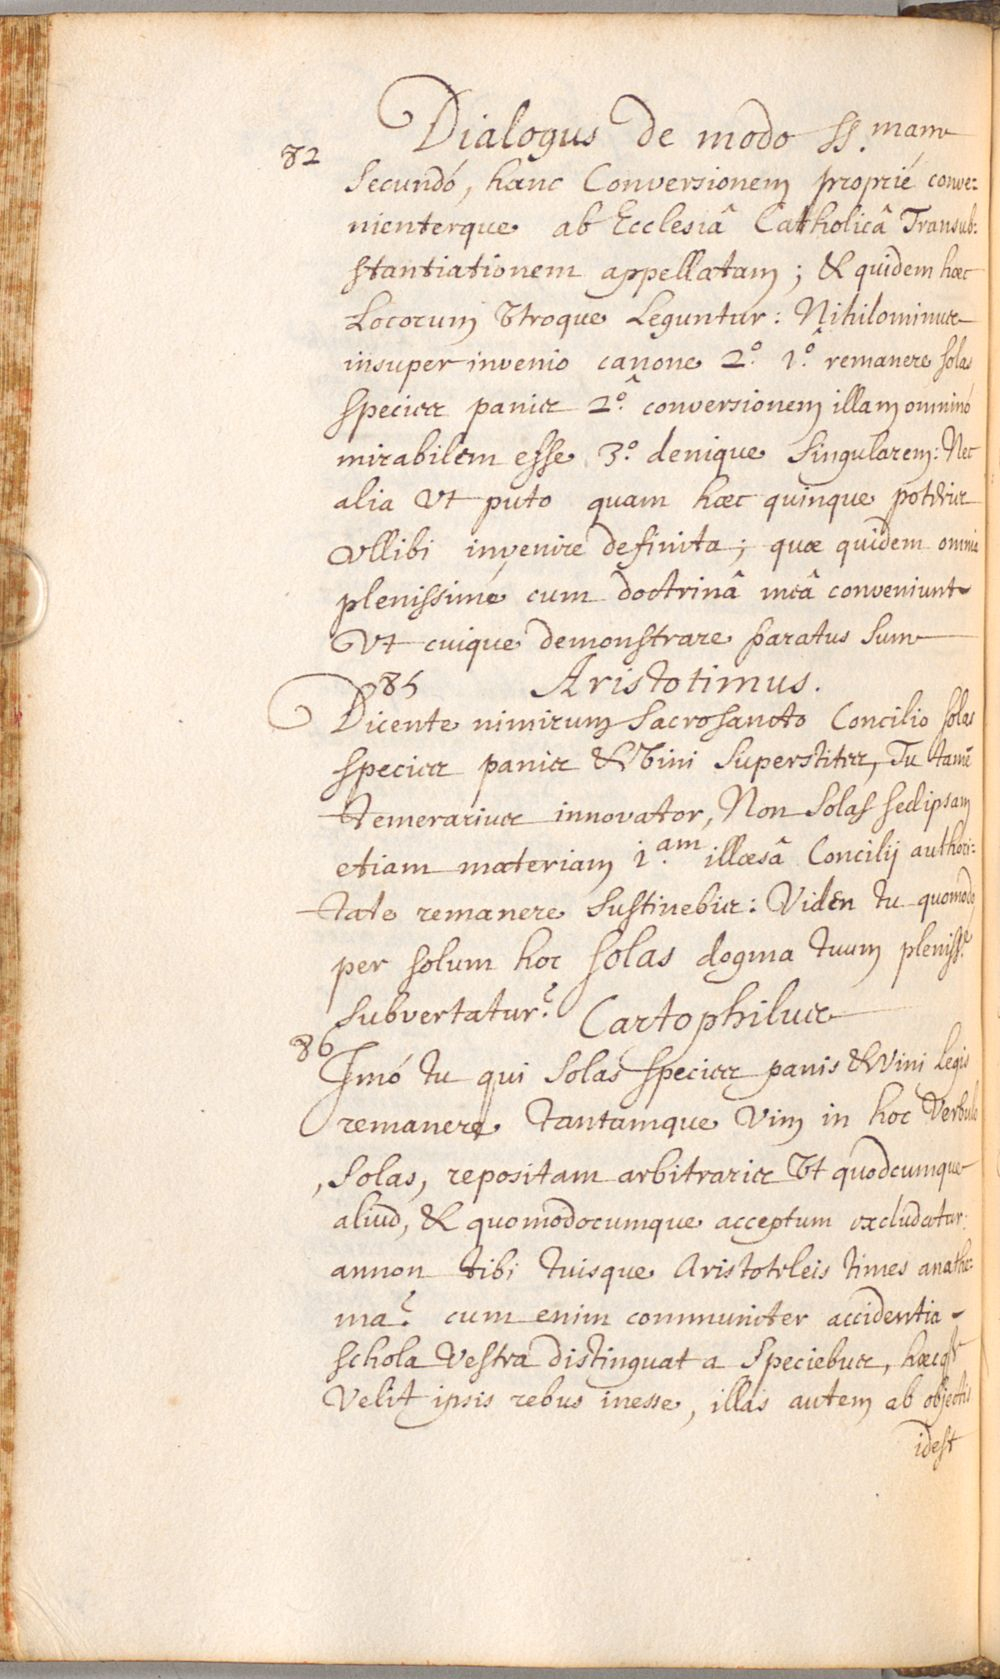 Dialogus de modo SS.mam
82
Secundó, hanc Conversionem proprié conve:
nienterque ab Ecclesiâ Catholicâ Transub:
stantiationem appellatam; & quidem hæc
Locorum Utroque Leguntur: Nihilominus
insuper invenio canone 2.º 1.º remanere solas
species panis 2.º conversionem illam omninó
mirabilem esse 3.º denique Singularem: Nec
alia Ut puto quam hæc quinque poteris
Ullibi invenire definita; quæ quidem omnia
plenissimé cum doctrinâ meâ conveniunt
Ut cuique demonstrare paratus Sum
85 Aristotimus.
Dicente nimirum Sacrosancto Concilio solas
species panis & Vini Superstites, Tu tamē
temerarius innovator, Non Solas sed ipsam
etiam materiam 1.am illæsâ Concilij authori:
tate remanere Sustinebis: Viden tu quomodo
per solum hoc solas dogma tuum pleniss.e
subvertatur? Cartophilus
86
Imó tu qui Solas species panis & Vini legis
remanere tantamque Vim in hoc Verbulo
, Solas, repositam arbitraris Ut quodcumque
aliud, & quomodocumque acceptum excludatur:
annon tibi tuisque Aristoteleis times anathe:
ma? cum enim communiter accidentia
schola Vestra distinguat a Speciebus, hæcq3
Velit ipsis rebus inesse, illas autem ab objectis
idest